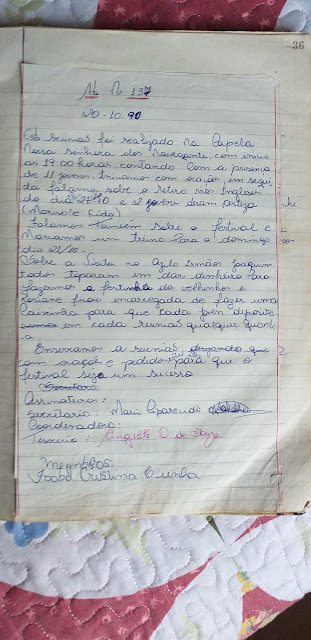 36
Nº 137
20-10-90
Esta reunião foi realizada na Capela
Nossa senhora dos Navegante, com início
as 19:00 horas, contando com a presença
de 11 jovens. Iniciamos com oração, em segui
da falamos sobre o retiro nos Ingleses
do dia 10 e 2 jovens deram certeza
(Marisol e Lido)
Falamos também sobre o festival e
Marcamos um treino para o domingo
dia 21/10.
Sobre a visita no azilo Irmão Joaquim
todos toparam em dar dinheiro para
fazermos a festinha do velhinhos e
ficou encarregada de fazer uma
Caixinha para que cada jovem deposite
em cada reunião qualquer quanti
a
Encerramos a reunião, desejando que
com oração e pedidos para que o
festival seja um sucesso
Secretaria
Assinaturas:
Secretario: Marli Aparecida
Coordenadora:
Tesoureiro: O. de Souza
Membros:
Isabel Cristina Cunha